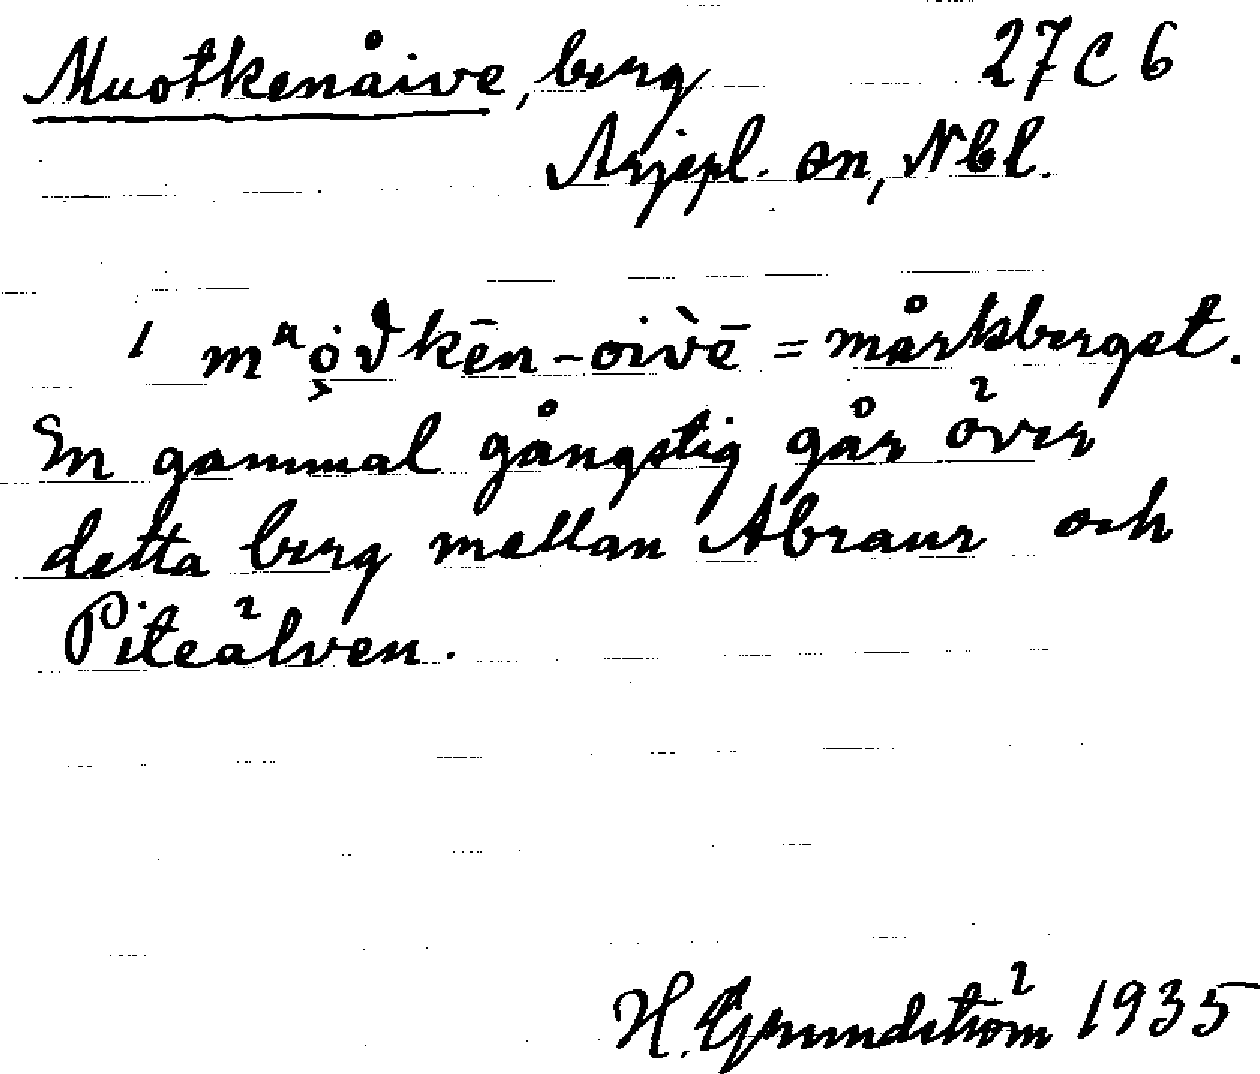 Muotkenåive, berg 27 C 6
Arjepl. sn, Nbl.
= mårkberget.
En gammal gångstig går över
detta berg mellan Abraur och
Piteälven.
H. Grundström 1935